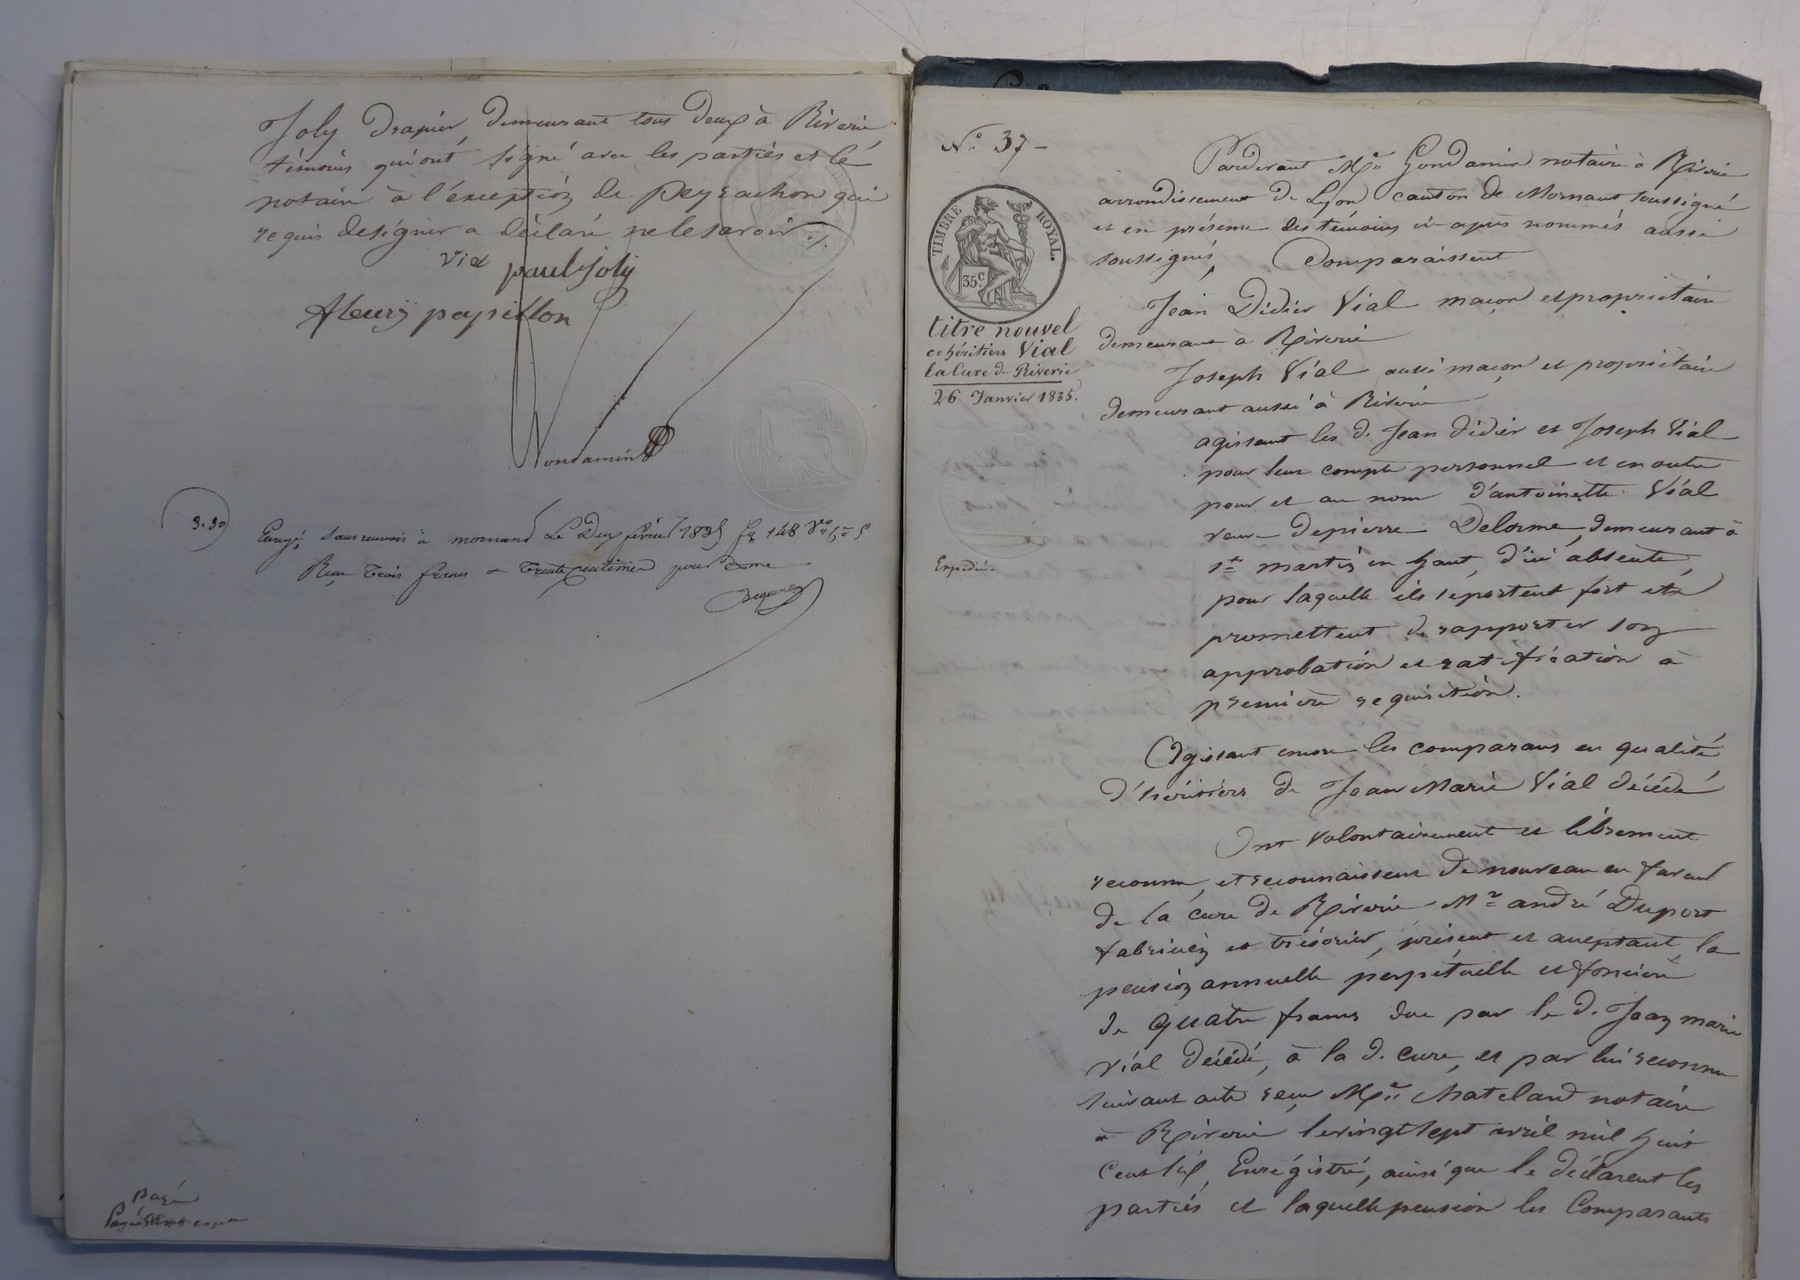 Joly Drapier, demeurant tous deux à Riverie
témoins qui ont signé avec les parties et le
notaire à l'exception de Peyrachon qui
requis de signer a déclaré ne le savoir ./.
Vial pauljoly
fleury papillon
Gondamin
3.30
Enregé sans renvois à mornant Le Deux février 1835 fo 148 Vo
Reçu trois francs trente centimes pour dixme
payé
No 37 -
TIMBRE ROYAL.
35c
titre nouvel
cohéritiers Vial
la Cure de Riverie
26 Janvier 1835.
Expédié.
Pardevant Me Gondamin notaire à Riverie
arrondissement de Lyon canton de Mornant soussigné
et en présence des témoins ci-après nommés aussi
soussignés, Comparaissent
Jean Didier Vial maçon et propriétaire
demeurant à Riverie
Joseph Vial aussi maçon et propriétaire
demeurant aussi à Riverie
agissant les d. Jean Didier et Joseph Vial
pour leur compte personnel et en outre
pour et au nom d'antoinette Vial
veuve de pierre Delorme, demeurant à
St martin en haut, d'ici absente,
pour laquelle ils se portent fort et
promettent de rapporter son
approbation et ratification à
première réquisition.
Agissant encore les comparans en qualité
d'héritiers de Jean Marie Vial décédé
Ont volontairement et librement
reconnu, et reconnaissent de nouveau en faveur
de la cure de Riverie Mr andré Duport
fabricien et trésorier, présent et acceptant, la
pension annuelle perpétuelle et foncière
de quatre francs due par le d. Jean marie
Vial décédé, à la d. cure, et par lui reconnu
suivant acte reçu Me Chateland notaire
à Riverie le vingt sept avril mil huit
Cent six, Enregistré, ainsi que le déclarent les
parties et laquelle pension les Comparants